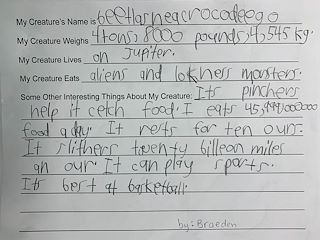 My Creature's Name is beetlasneacrocodeego
My Creature Weighs 4 tons, 8000 pounds, 4,545 kg.
My Creature Lives on Jupiter.
My Creature Eats aliens and lokness monsters.
Some Other Interesting Things About My Creature: It's pinchers
help it cetch food. I eats 45,
food a day. It rests for ten ours.
It slithers twenty billeon miles
an our. It can play sports.
It's best at basketball.
by: Braeden